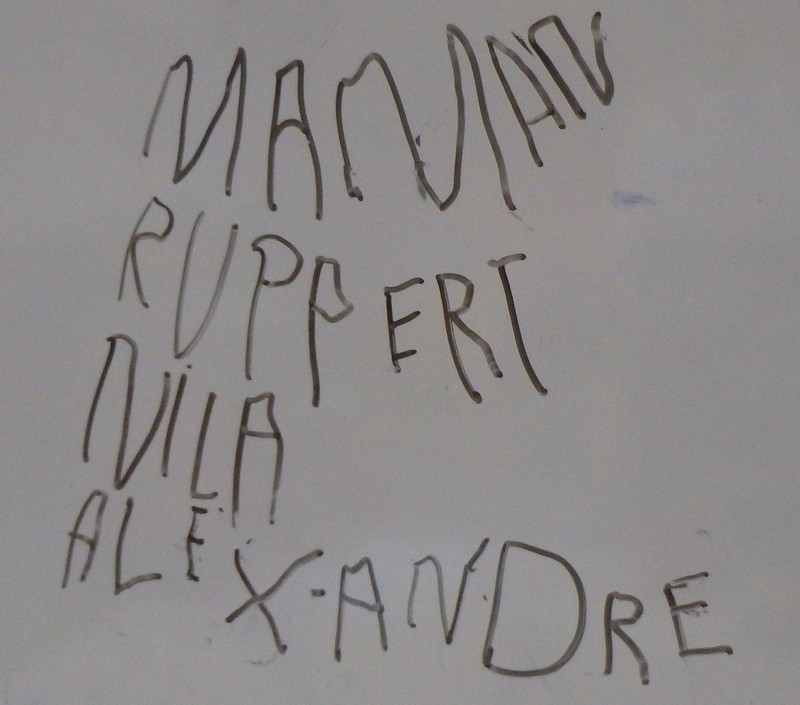 MAMAN
RUPPERT
NILA
ALEXANDRE